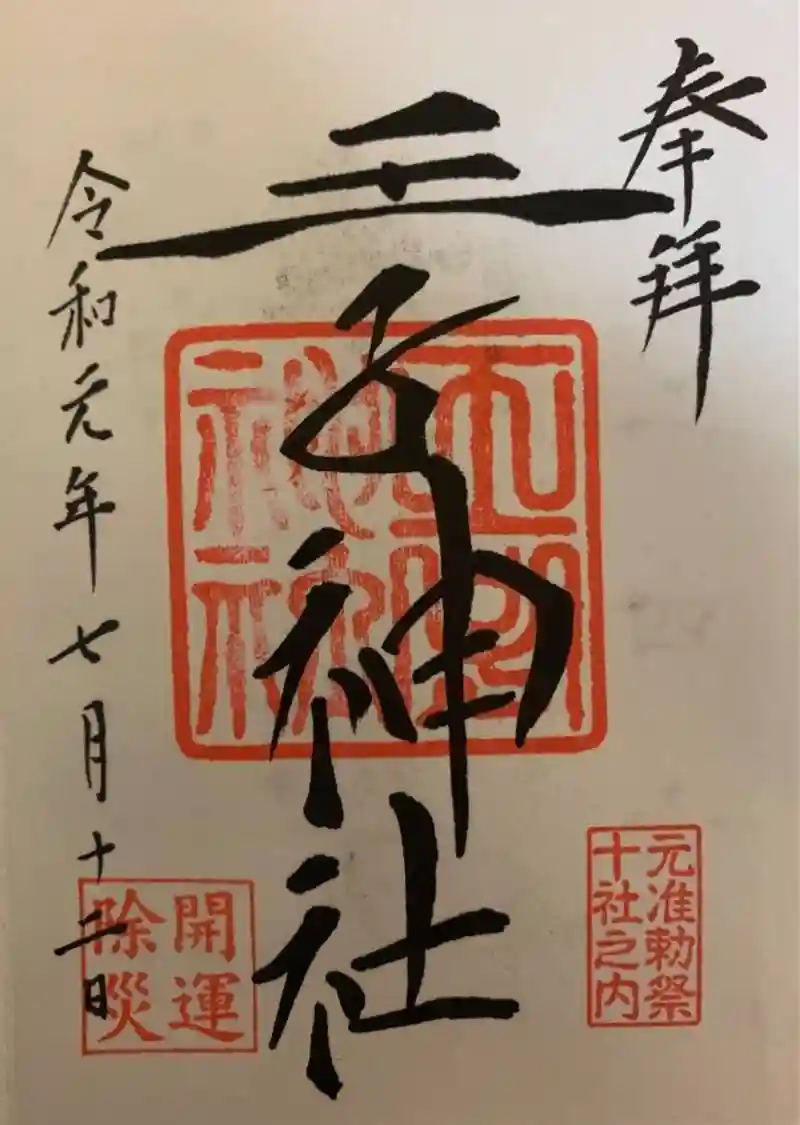 奉拝
王子神社
令和元年七月十二日
元准勅祭
十社之内
開運
除災